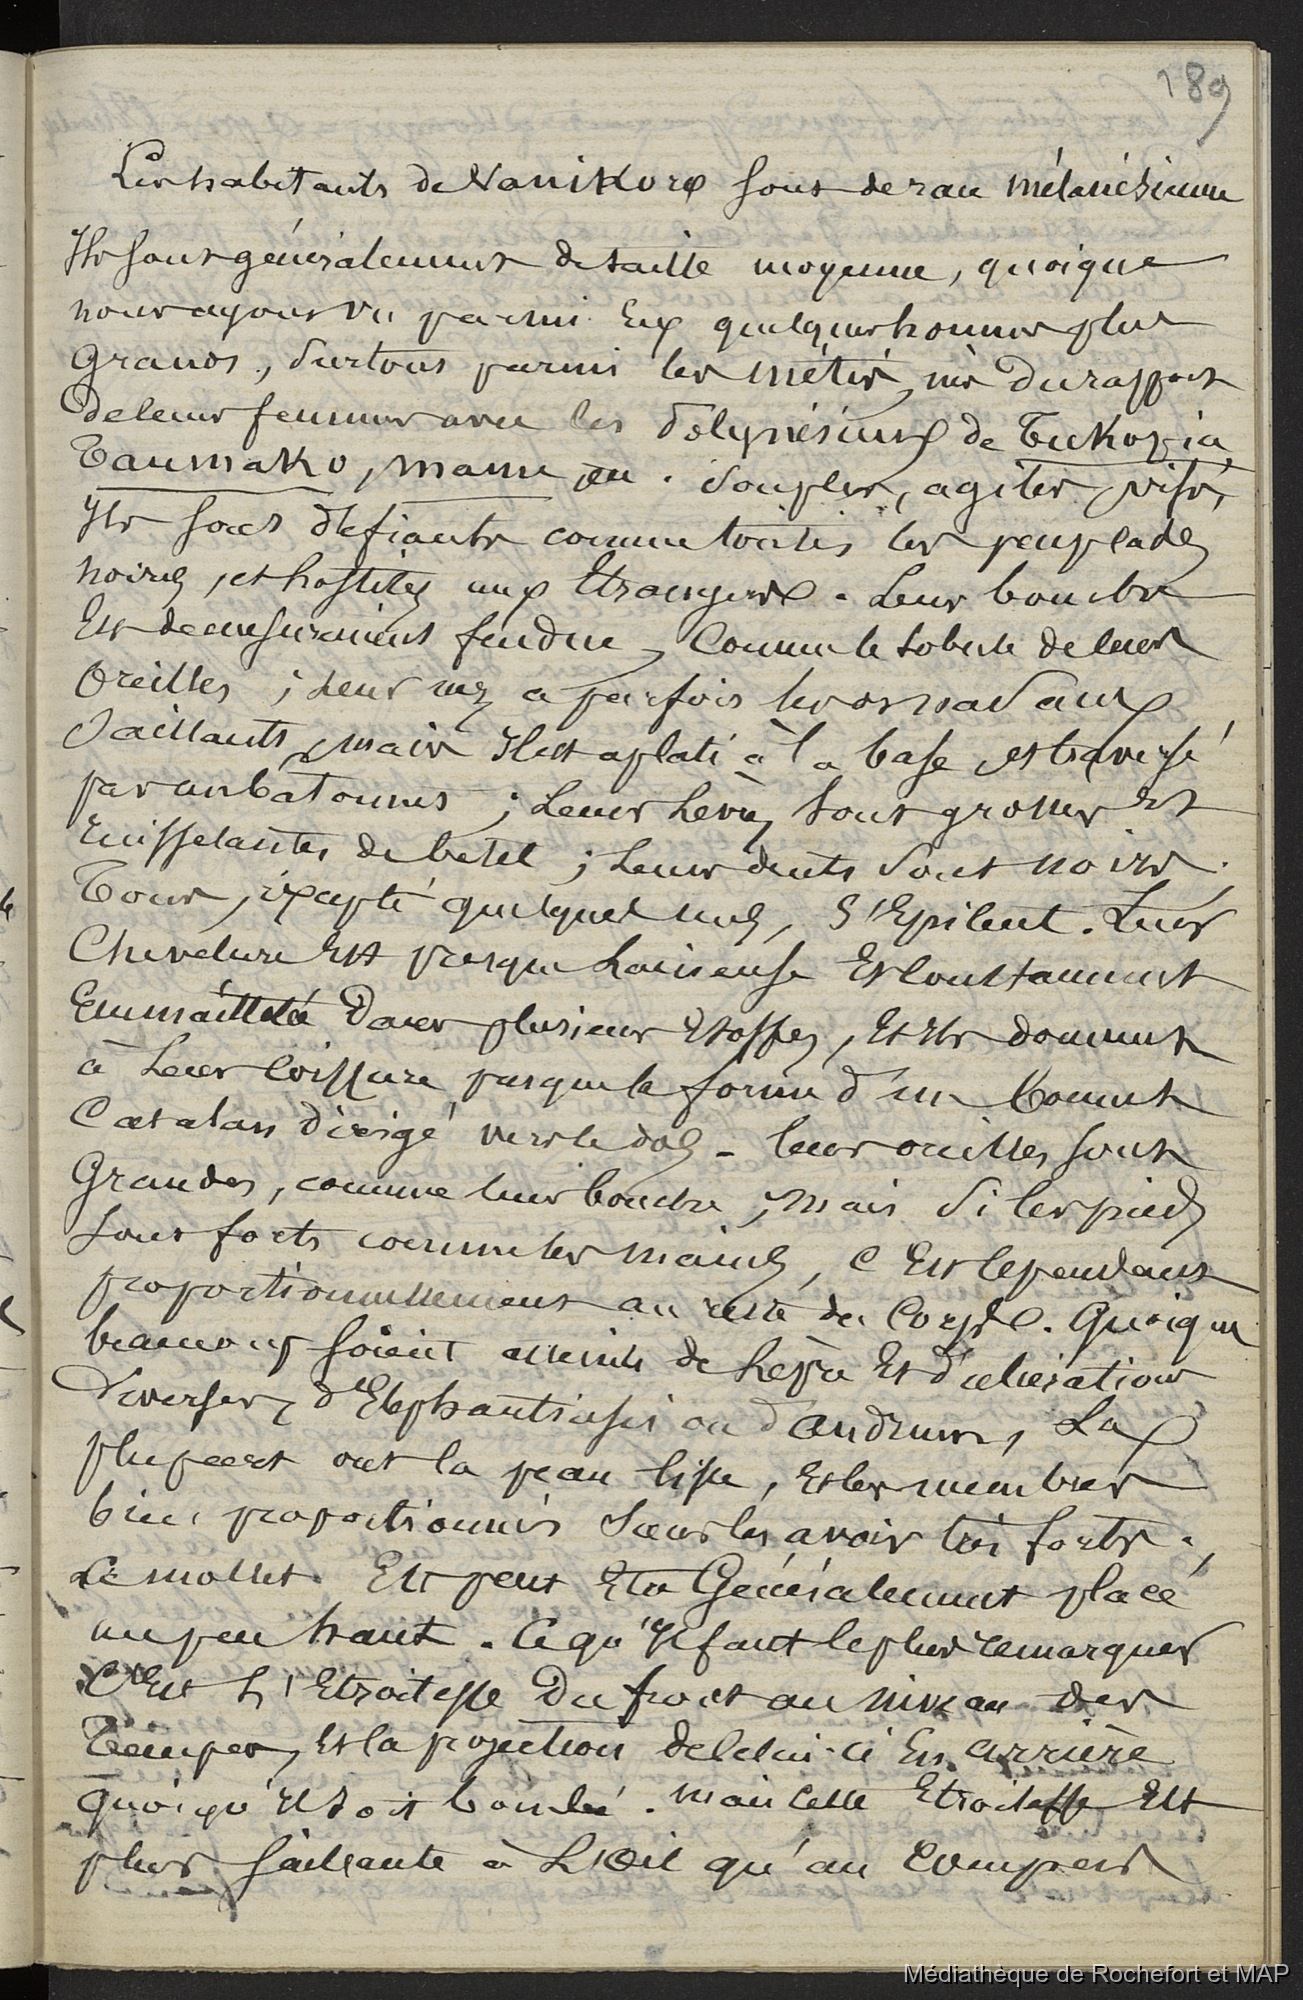 189
Les habitants de Vanikoro sont de race mélanésienne
Ils sont généralement de taille moyenne, quoique
nous ayons vu parmi Eux quelques hommes plus
Grands, surtout parmi les métis, nés du rapport
de leurs femmes avec les Polynésiens de Tukopia,
Taumako, manu ou . Souples, agiles, vifs,
Ils sont défiants comme toutes les peuplades
noires, et hostiles aux Etrangers. Leur bouche
Est demesurément fendue, Comme le lobule de leurs
Oreilles ; leur nez a parfois les os nasaux
Saillants, mais Il est aplati à la base, et traversé
par un bâtonnet ; Leurs Lèvres sont grosses Et
ruisselantes de betel ; Leurs dents sont noires.
Tous, excepté quelques uns, S'Epilent. Leur
Chevelure Est presque Laineuse Et Constamment
Emmaillotée Dans plusieurs Etoffes, Et Ils donnent
à Leur Coiffure presque la forme d'un bonnet
Catalan Dirigé vers le dos - leurs oreilles sont
Grandes, comme leur bouche ; mais Si les pieds
sont forts comme les mains, C'Est Cependant
proportionnellement au reste du Corps. Quoique
beaucoup soient atteints de Lèpre Et d'ulcérations
Diverses, d'Elephantiasis ou d'andrum, La
plupart ont la peau lisse, Et les membres
bien proportionnés Sans les avoir très forts.
Le mollet Est peut Etre Généralement placé
un peu haut. Ce qu'Il faut le plus remarquer
C'Est L'Etroitesse Du front au niveau des
Tempes, Et la projection de celui-ci En arrière
quoiqu'Il soit bombé. mais cette Etroitesse Est
plus saillante à L'Oeil qu'au Compas
Médiathèque de Rochefort et MAP